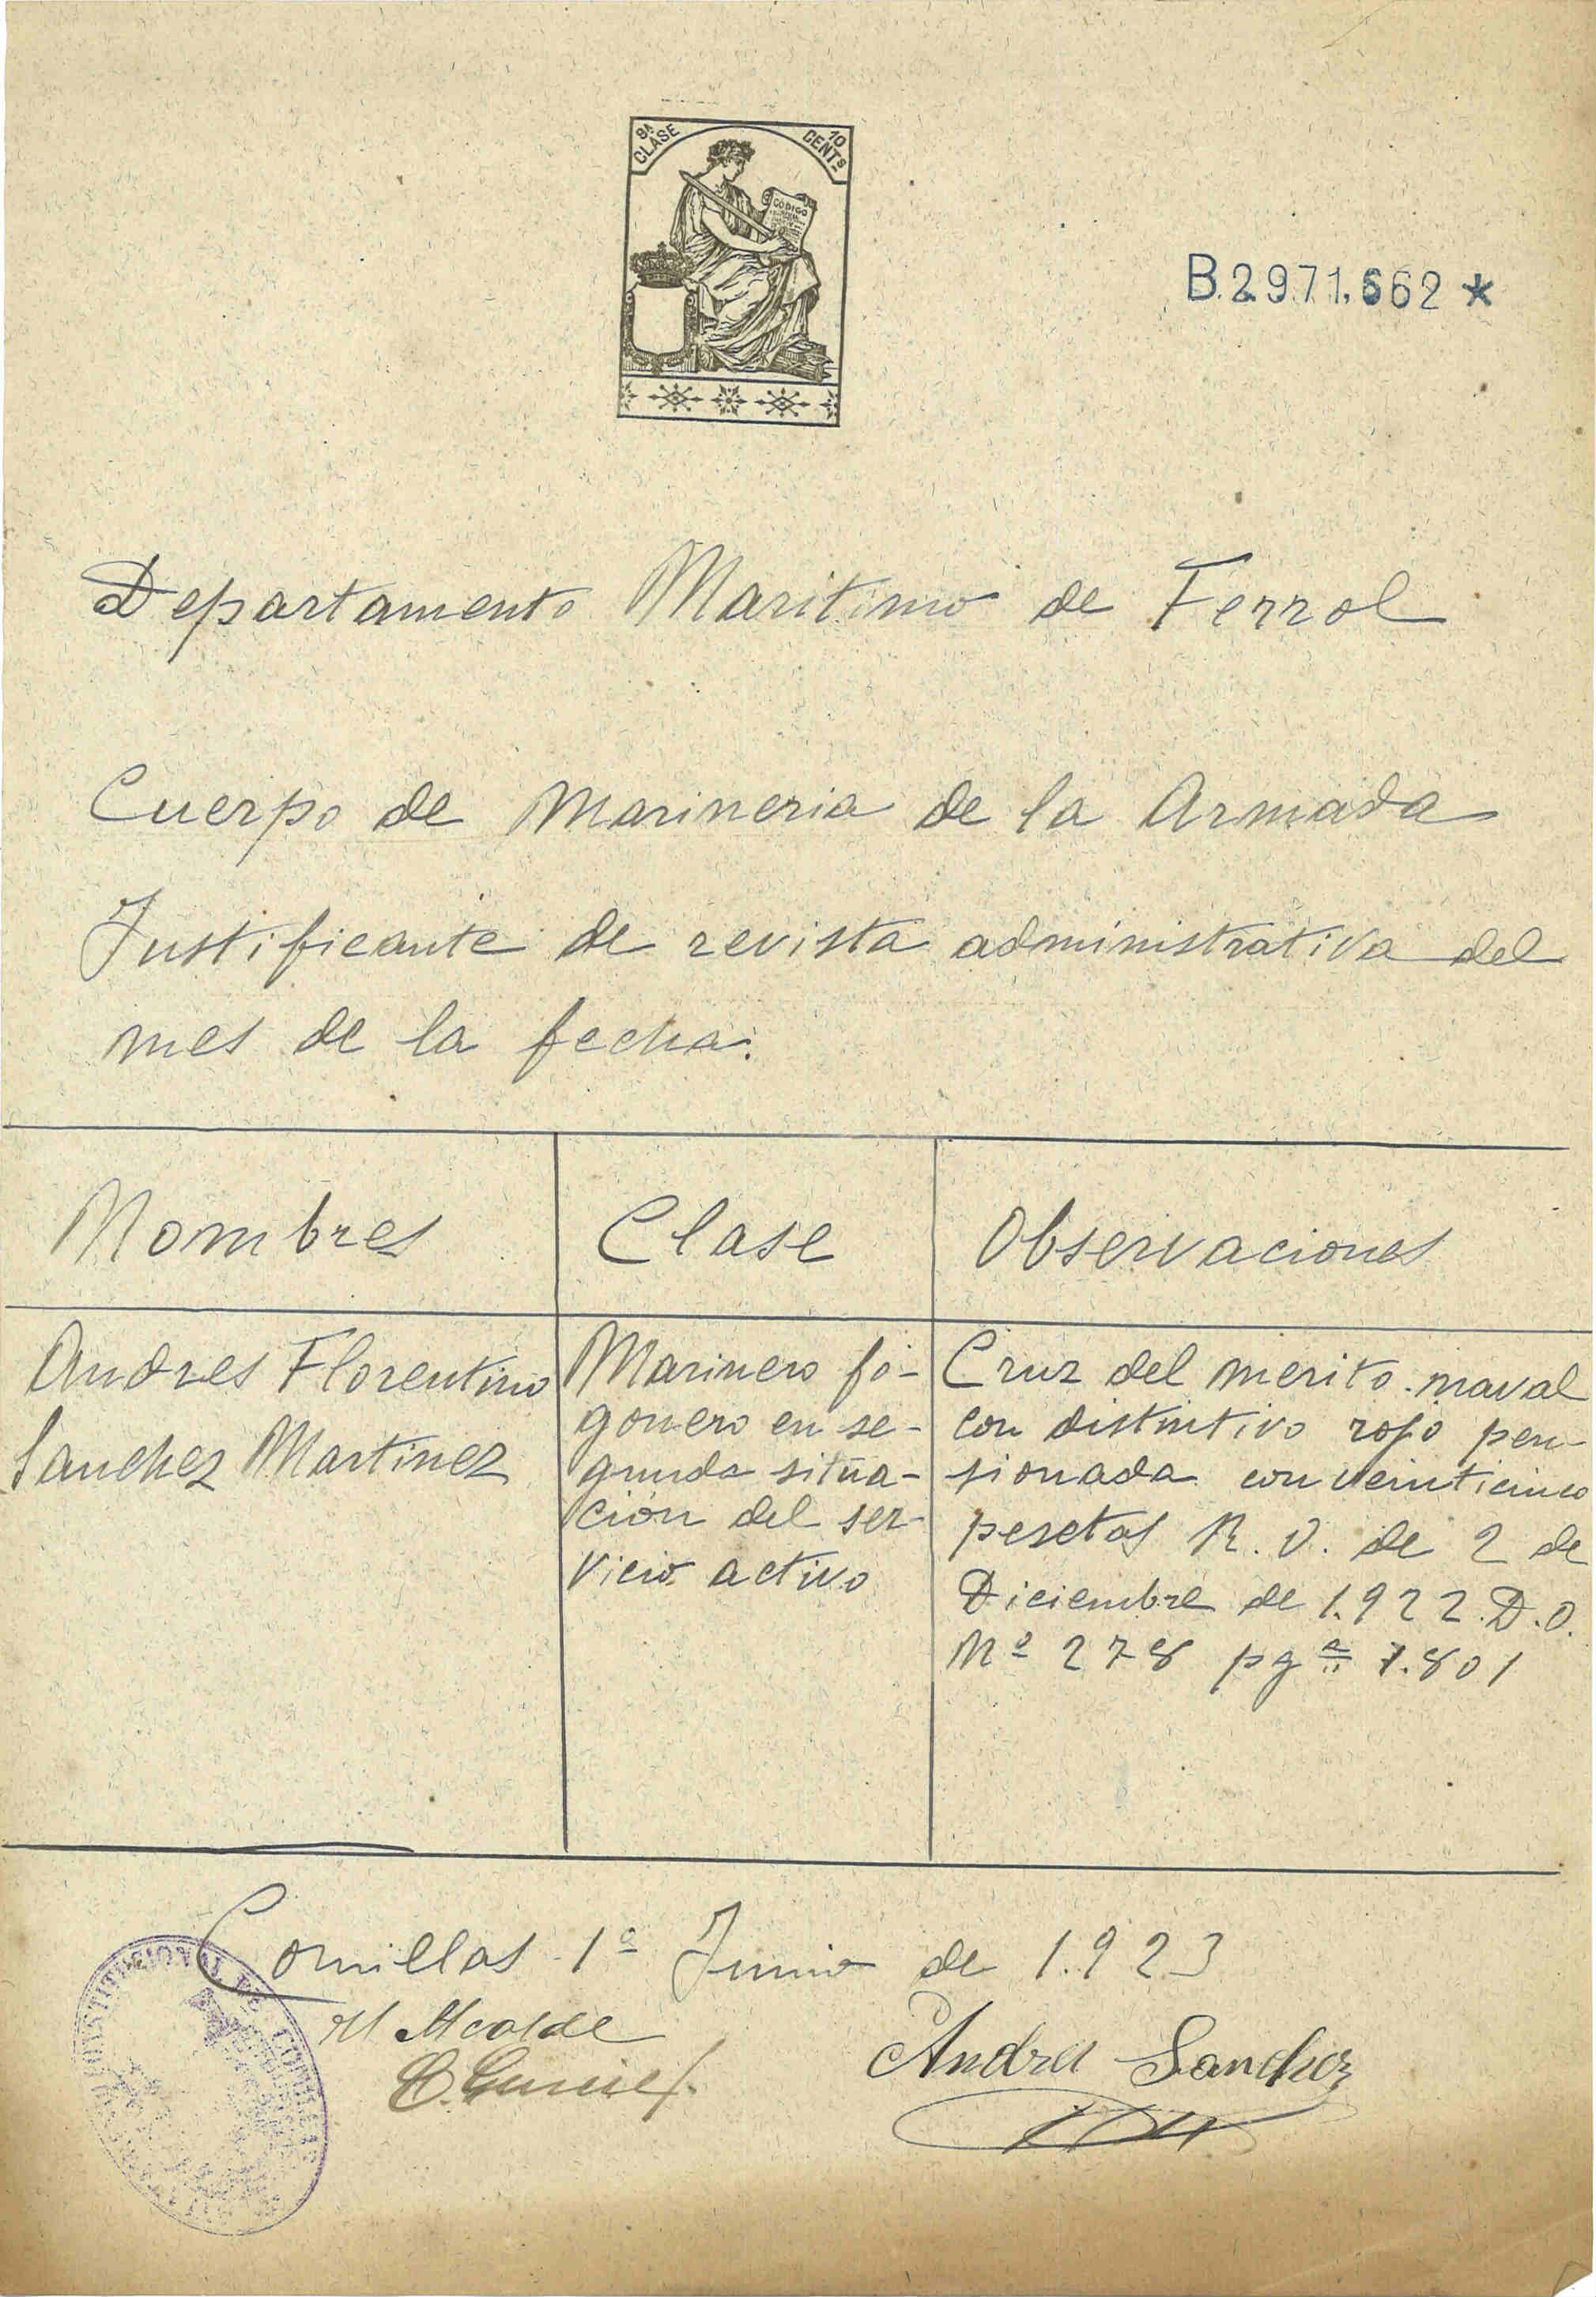 8ª CLASE
10 CENTS
CODIGO
B.2.971.662 *
Departamento Maritimo de Ferrol
Cuerpo de Marineria de la Armada
Justificante de revista administrativa del
mes de la fecha.
Nombres
Clase
Observaciones
Andres Florentino
Sanchez Martinez
Marinero fo-
gonero en se-
gunda situa-
ción del ser-
vicio activo
Cruz del merito naval
con distintivo rojo pen-
sionada con veinticinco
pesetas R. O. de 2 de
Diciembre de 1.922. D.O.
Nº 278 pgª 1.801
Comillas 1º Junio de 1.923
El Alcalde
Andres Sanchez